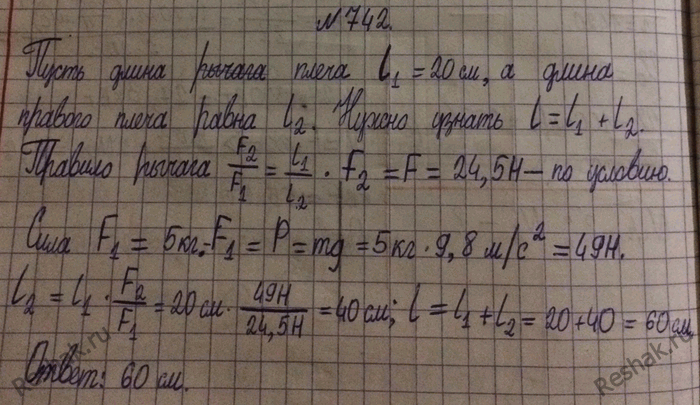 №742.
Пусть длина рычага плеча l₁ = 20 см, а длина
правого плеча равна l₂. Нужно узнать l = l₁ + l₂.
Правило рычага F₂/F₁ = l₁/l₂ · F₂ = F = 24,5Н – по условию.
Сила F₁ = 5кг. - F₁ = P = mg = 5кг · 9,8 м/с² = 49Н.
l₂ = l₁ · F₂/F₁ = 20 см · 49Н/24,5Н = 40 см; l = l₁ + l₂ = 20 + 40 = 60 см
Ответ: 60 см.
Reshak.ru
Reshak.ru